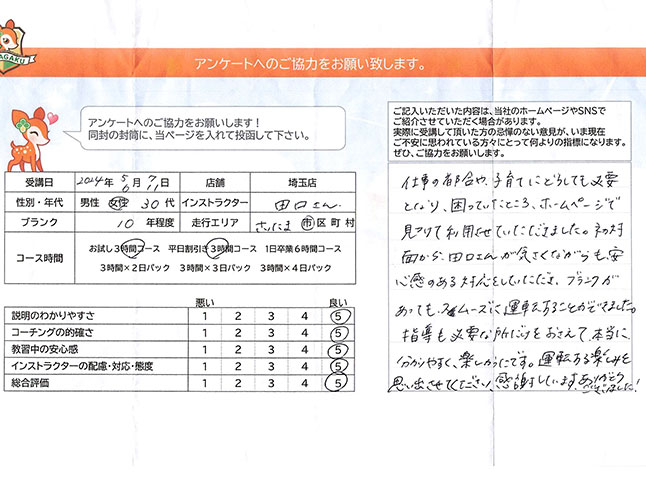 AGAKU
アンケートへのご協力をお願い致します。
アンケートへのご協力をお願いします！
同封の封筒に、当ページを入れて投函して下さい。
ご記入いただいた内容は、当社のホームページやSNSで
ご紹介させていただく場合があります。
実際に受講して頂いた方の忌憚のない意見が、いま現在
ご不安に思われている方々にとって何よりの指標になります。
ぜひ、ご協力をお願いします。
受講日 2024年 5/6月 7/11日 店舗 埼玉店
性別・年代 男性 女性 30代 インストラクター 田口さん
ブランク 10年程度 走行エリア さいたま 市区町村
コース時間 お試し3時間コース 平日割引き3時間コース 1日卒業6時間コース
3時間×2日パック 3時間×3日パック 3時間×4日パック
悪い 良い
説明のわかりやすさ 1 2 3 4 5
コーチングの的確さ 1 2 3 4 5
教習中の安心感 1 2 3 4 5
インストラクターの配慮・対応・態度 1 2 3 4 5
総合評価 1 2 3 4 5
仕事の都合や、子育てにどうしても必要
となり、困っていたところ、ホームページで
見つけて利用させていただきました。初対
面から、田口さんが気さくながらも、安
心感のある対応をしていただき、ブランクが
あっても、スムーズに運転することができました。
指導も必要な所だけをおさえて、本当に
分かりやすく、楽しかったです。運転する楽しみを
思い出させてくださり、感謝しています。ありがとう
ございました！